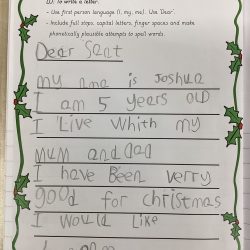 LO: To write a letter.
- Use first person language (I, my, me). Use 'Dear'.
- Include full stops, capital letters, finger spaces and make
phonetically plausible attempts to spell words.
Dear Sant
my nme is Joshua
I am 5 years old
I Live Whith my
mum and dad
I have Been verry
good for christmas
I would Like